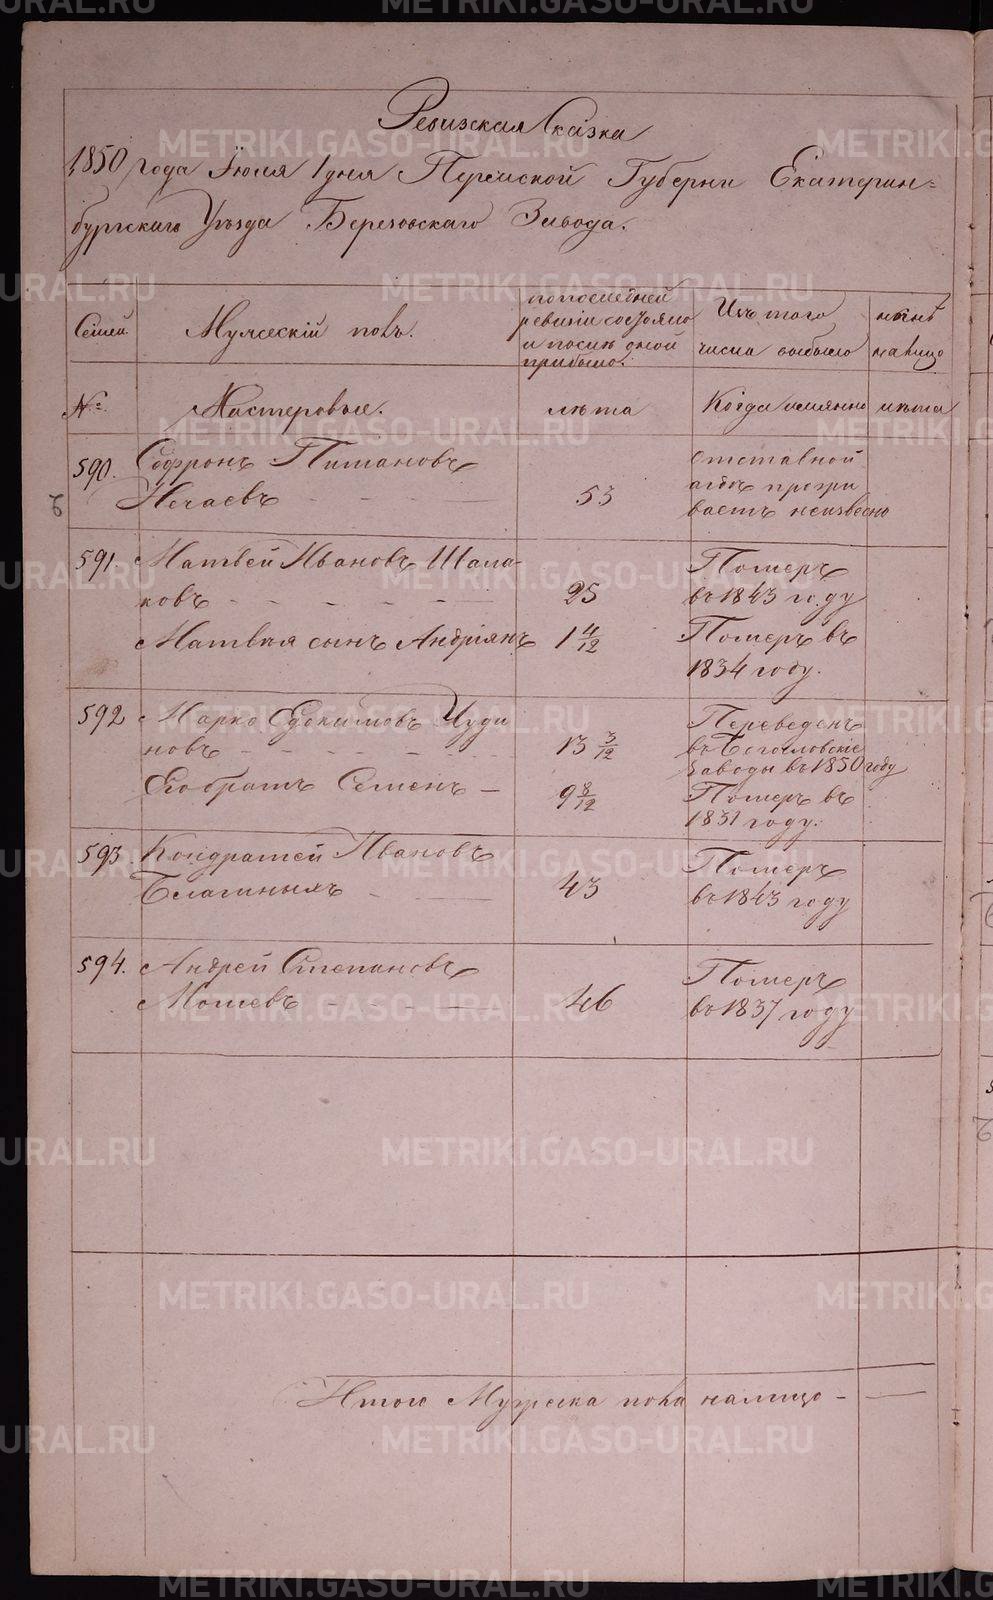 Ревизская Сказка
1850 года Июля 1 дня Пермской Губернии Екатерин=
бургскаго Уезда Березовскаго Завода.
Семьи
Мужеский полъ.
по последней
ревизии состояло
и после оной
прибыло.
Изъ того
числа выбыло
ныне
налицо
№
Мастеровые.
лета
Когда имянно
лета
590.
Софронъ Питановъ
Нечаевъ
53
Отставной
а где прози
ваетъ неизвесно
591.
Матвей Ивановъ Шала-
ковъ
25
Померъ
въ 1843 году
Матвея сынъ Андріянъ
1 4/12
Померъ въ
1834 году.
592
Марко Едокимовъ Чуди
новъ
13 3/12
Переведенъ
въ Богословскіе
заводы въ 1850 году
Его братъ Семенъ
9 8/12
Померъ въ
1831 году.
593.
Кондратей Ивановъ
Благиныхъ
43
Померъ
въ 1843 году
594.
Андрей Степановъ
Мошевъ
46
Померъ
въ 1837 году
Итого Мужеска пола налицо —
METRIKI.GASO-URAL.RU